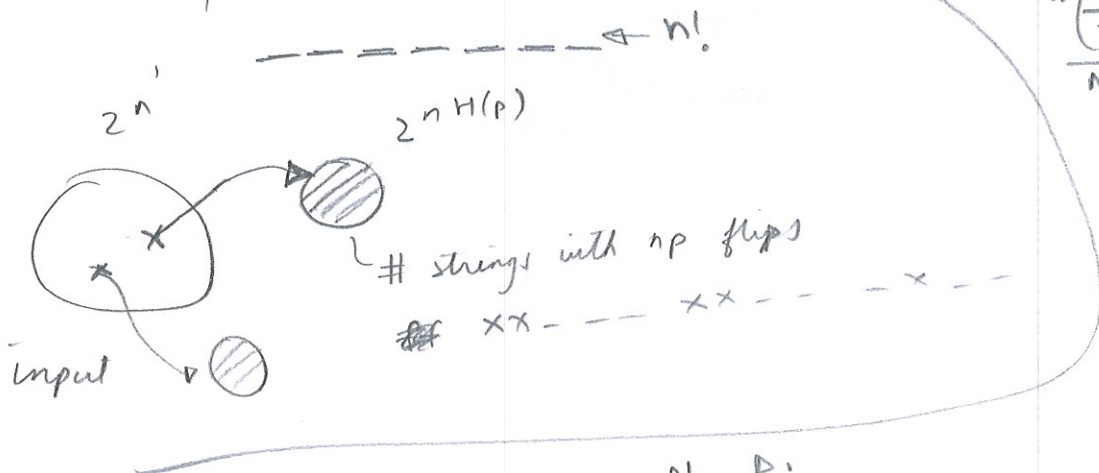 _ _ _ _ _ _ _ ← n!
2^n'
2^{n H(p)}
# strings with np flips
xx _ _ _ _ xx _ _ _ _ x _ _
input